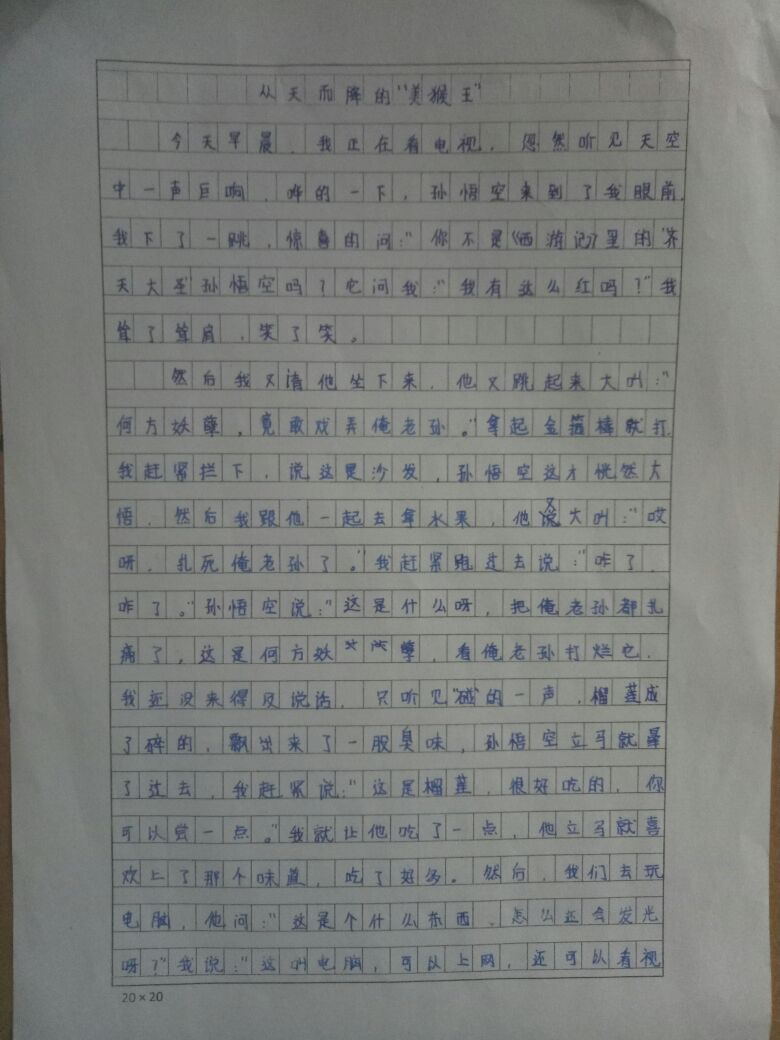 从天而降的“美猴王”
今天早晨，我正在看电视，忽然听见天空
中一声巨响，哗的一下，孙悟空来到了我眼前，
我下了一跳，惊喜的问：“你不是《西游记》里的“齐
天大圣”孙悟空吗？它问我：“我有这么红吗？”我
耸了耸肩，笑了笑。
然后我又请他坐下来，他又跳起来大叫：“
何方妖孽，竟敢戏弄俺老孙。”拿起金箍棒就打，
我赶紧拦下，说这是沙发，孙悟空这才恍然大
悟，然后我跟他一起去拿水果，他又大叫：“哎
呀，扎死俺老孙了。”我赶紧跑过去说：“咋了，
咋了。”孙悟空说：“这是什么呀，把俺老孙都扎
痛了，这是何方妖孽，看俺老孙打烂它，
我还没来得及说话，只听见“碰”的一声，榴莲成
了碎的，飘出来了一股臭味，孙悟空立马就晕
了过去，我赶紧说：“这是榴莲，很好吃的，你
可以尝一点。”我就让他吃了一点，他立马就喜
欢上了那个味道，吃了好多。然后，我们去玩
电脑，他问：“这是个什么东西，怎么还会发光
呀？”我说：“这叫电脑，可以上网，还可以看视
20×20